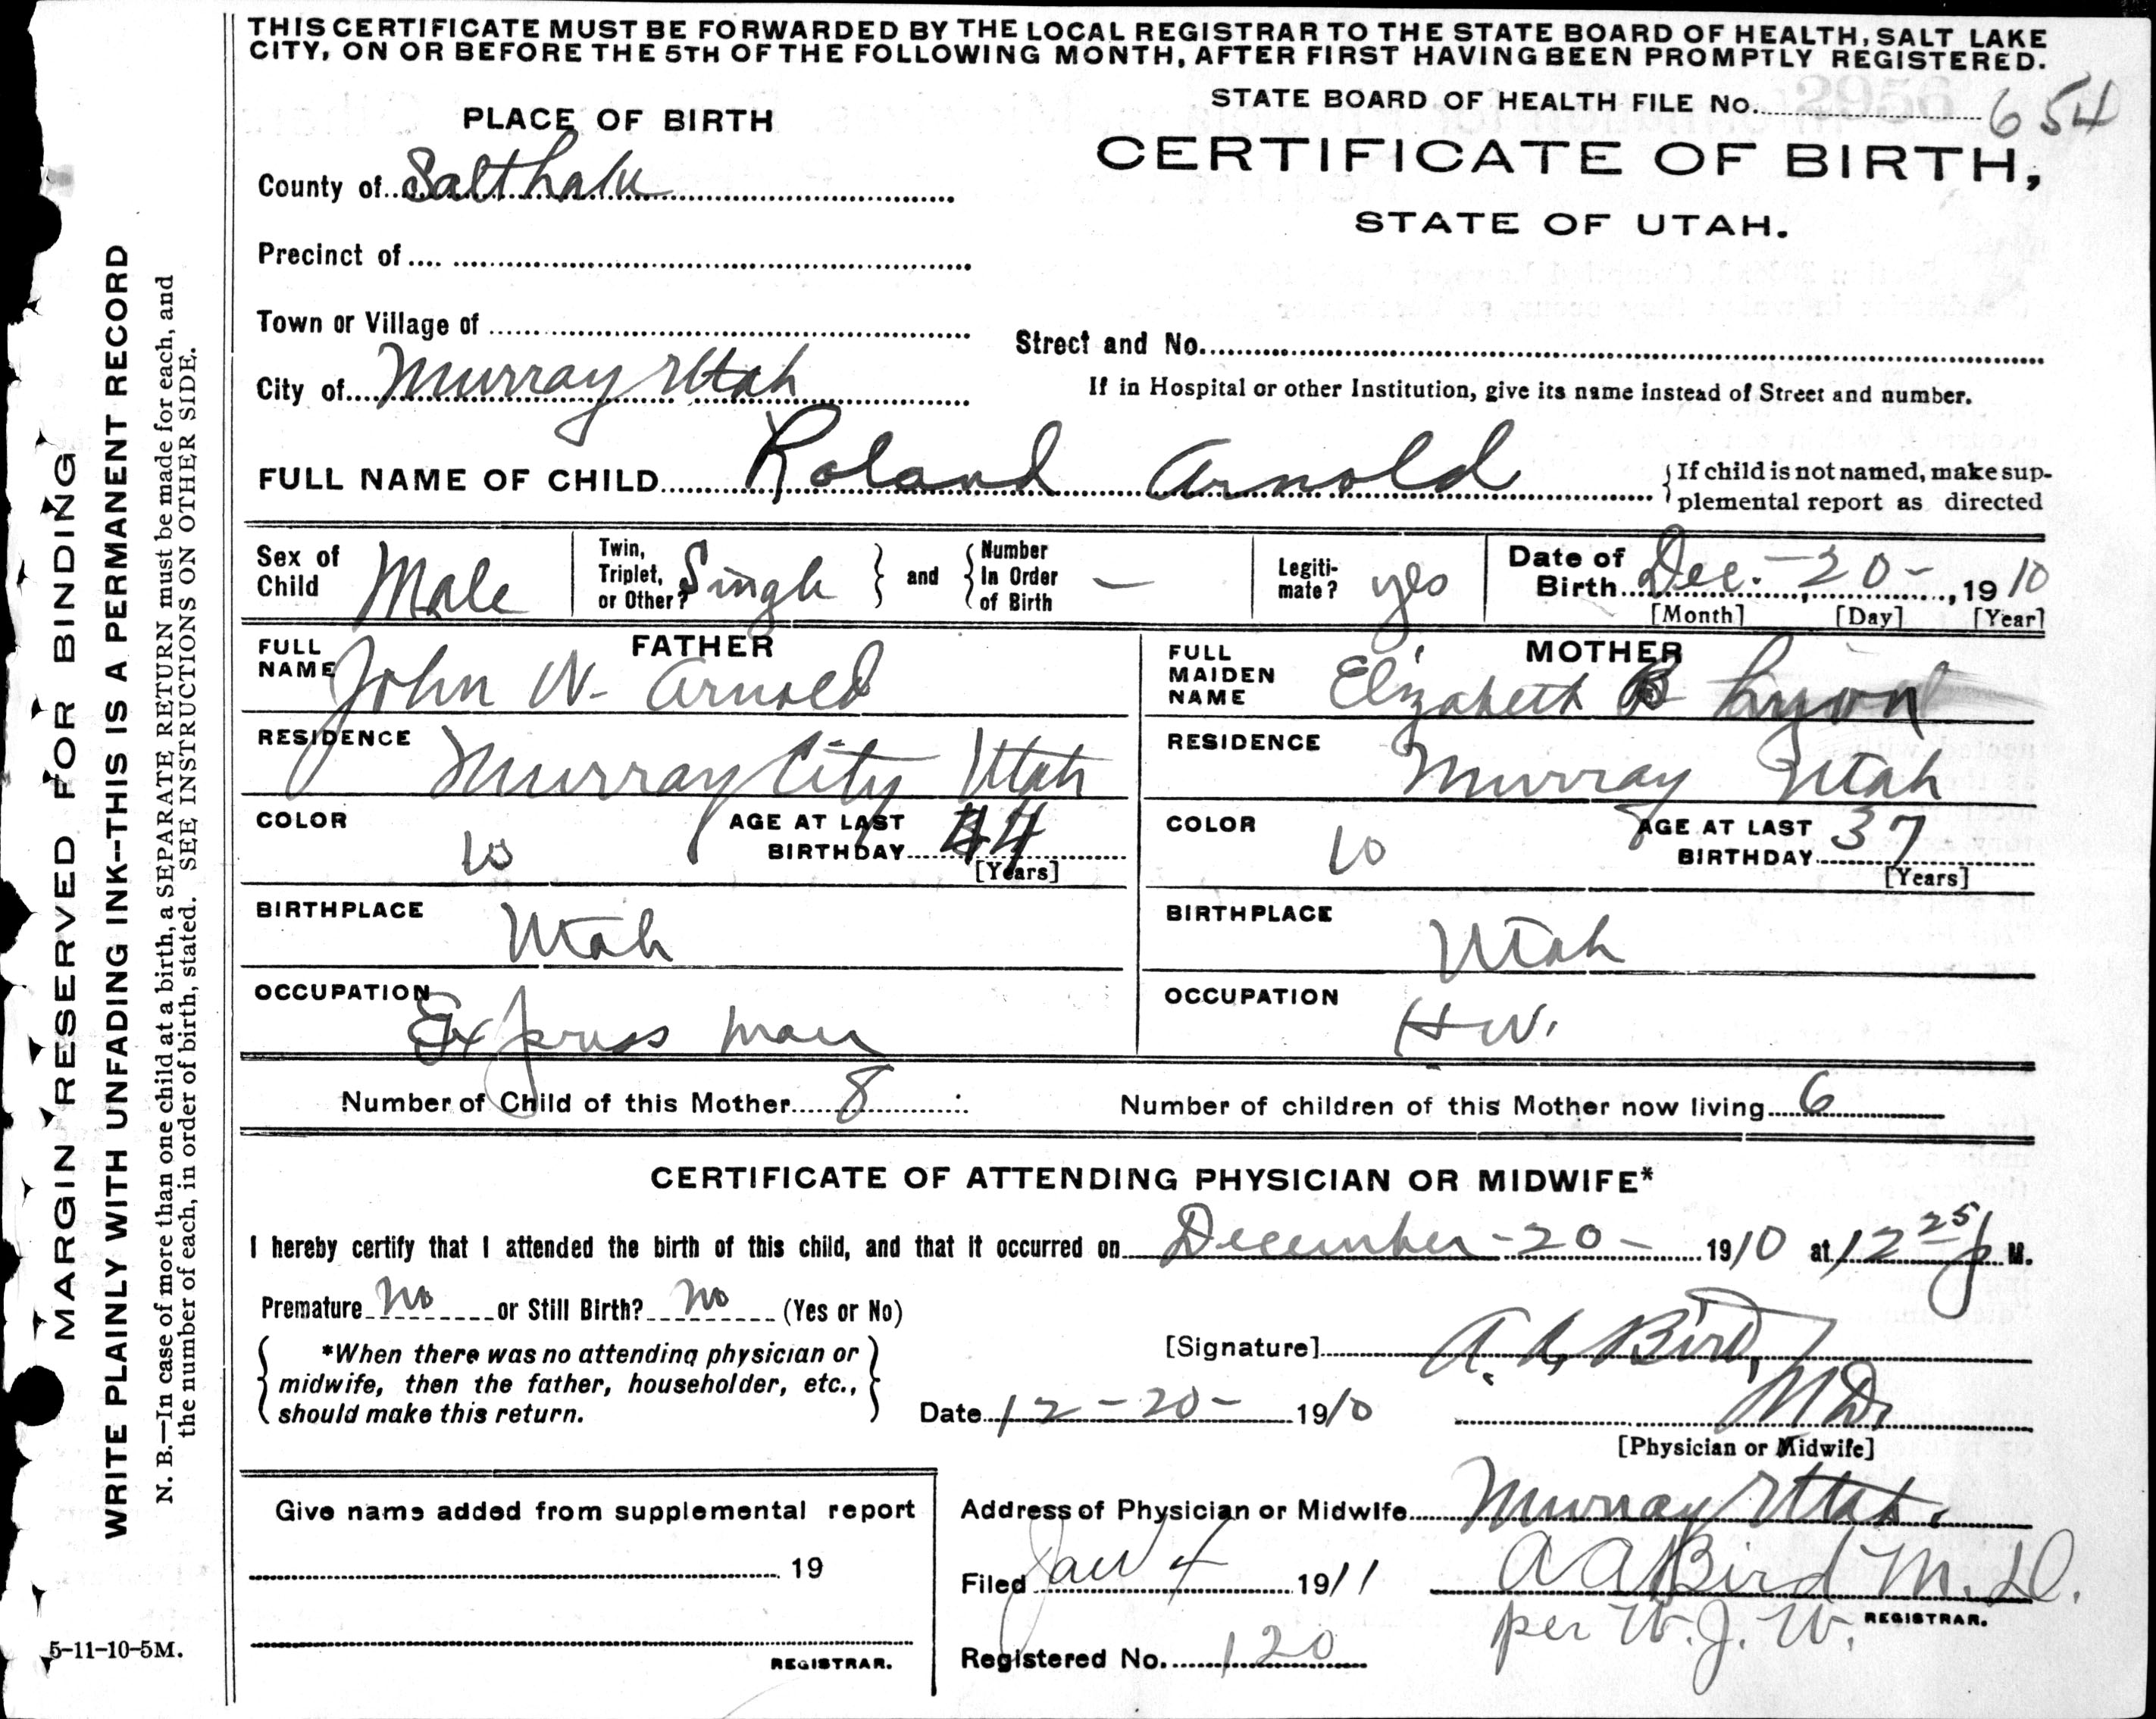 THIS CERTIFICATE MUST BE FORWARDED BY THE LOCAL REGISTRAR TO THE STATE BOARD OF HEALTH, SALT LAKE
CITY, ON OR BEFORE THE 5TH OF THE FOLLOWING MONTH, AFTER FIRST HAVING BEEN PROMPTLY REGISTERED.
STATE BOARD OF HEALTH FILE No. 2956 654
PLACE OF BIRTH
CERTIFICATE OF BIRTH,
STATE OF UTAH.
County of Salt Lake
Precinct of
Town or Village of
Street and No.
City of Murray Utah
If in Hospital or other Institution, give its name instead of Street and number.
FULL NAME OF CHILD Roland Arnold
{If child is not named, make sup-
plemental report as directed
Sex of Child Male
Twin, Triplet, or Other? Single } and { Number In Order of Birth —
Legiti-mate? yes
Date of Birth Dec. - 20 - , 1910
[Month] [Day] [Year]
FATHER
FULL NAME John W. Arnold
RESIDENCE Murray City Utah
COLOR W AGE AT LAST BIRTHDAY 44
[Years]
BIRTHPLACE Utah
OCCUPATION Express man
MOTHER
FULL MAIDEN NAME Elizabeth B Lyon
RESIDENCE Murray Utah
COLOR W AGE AT LAST BIRTHDAY 37
[Years]
BIRTHPLACE Utah
OCCUPATION H W.
Number of Child of this Mother 8 Number of children of this Mother now living 6
CERTIFICATE OF ATTENDING PHYSICIAN OR MIDWIFE*
I hereby certify that I attended the birth of this child, and that it occurred on December - 20 - 1910 at 12 25 p M.
Premature No or Still Birth? No (Yes or No)
*When there was no attending physician or
midwife, then the father, householder, etc.,
should make this return.
[Signature] A. A. Bird,
Date 12 - 20 - 1910 M D.
[Physician or Midwife]
Give name added from supplemental report
19
REGISTRAR.
Address of Physician or Midwife Murray Utah.
Filed Jan 4 1911 A A Bird M. D.
REGISTRAR.
per W. J. W.
Registered No. 120
5-11-10-5M.
MARGIN RESERVED FOR BINDING
WRITE PLAINLY WITH UNFADING INK--THIS IS A PERMANENT RECORD
N. B.—In case of more than one child at a birth, a SEPARATE RETURN must be made for each, and
the number of each, in order of birth, stated. SEE INSTRUCTIONS ON OTHER SIDE.